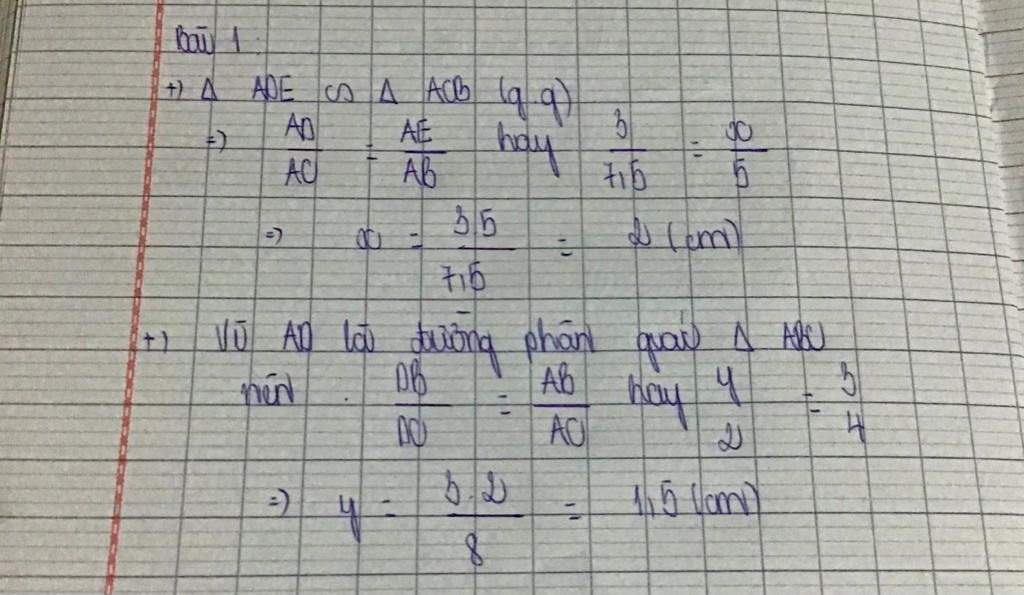 Bài 1:
+) Δ ADE ∽ Δ ACB (g.g)
=> AD/AC = AE/AB hay 3/7,5 = x/5
=> x = 3.5/7,5 = 2 (cm)
+) Vì AD là đường phân giác Δ ABC
nên DB/DC = AB/AC hay y/2 = 3/4
=> y = 3.2/8 = 1,5 (cm)